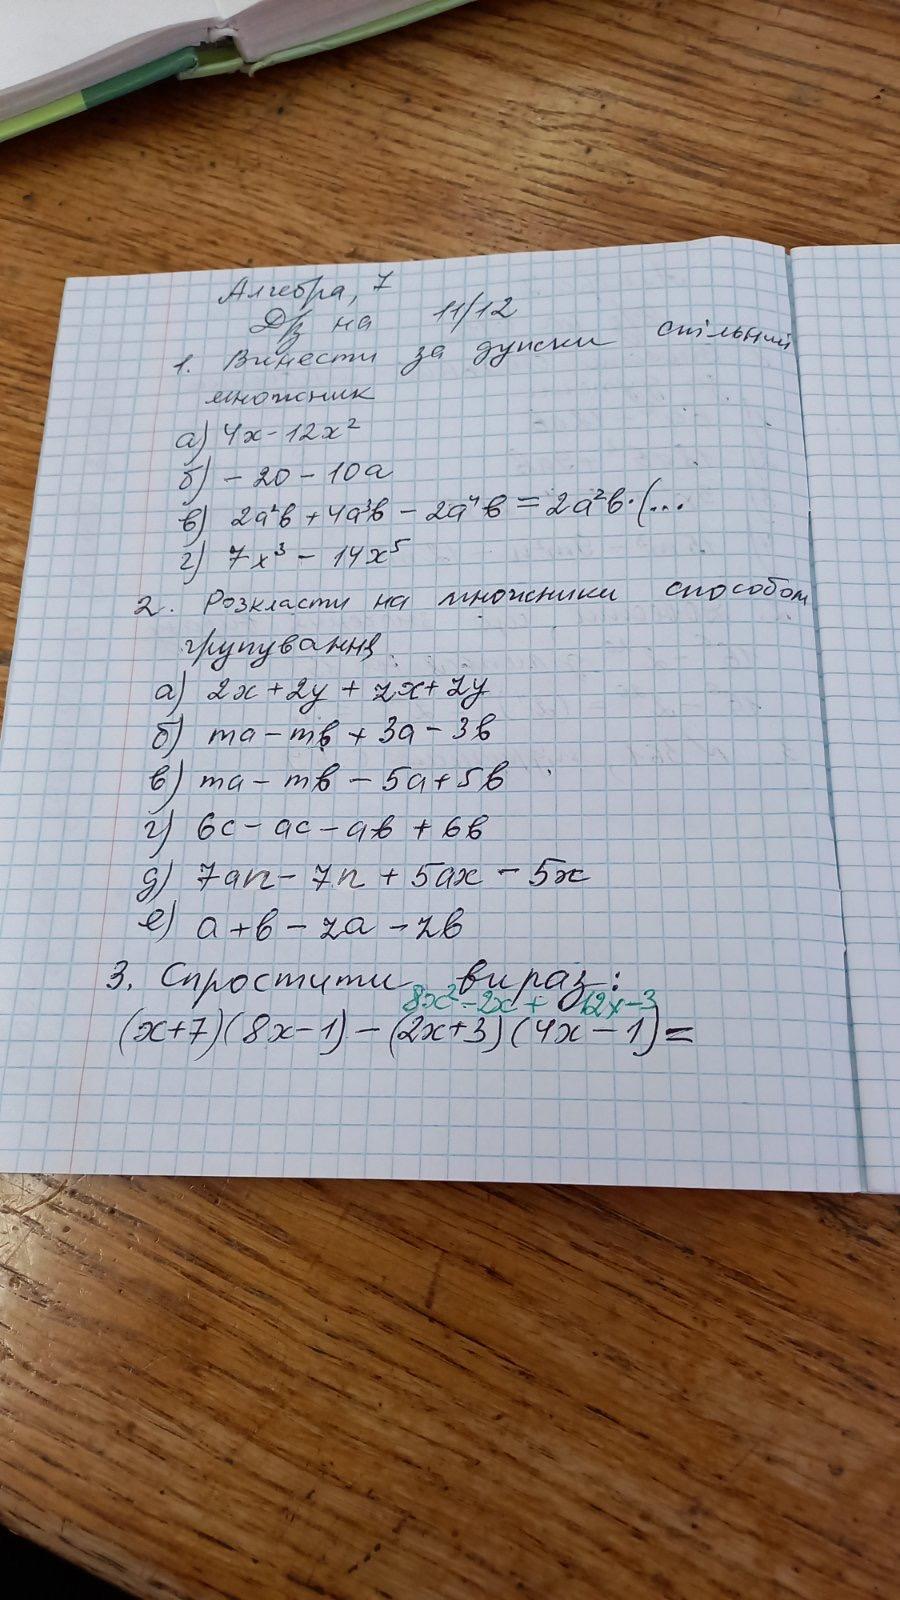 Алгебра, 7
Д/з на 11/12
1. Винести за дужки спільний
множник
а) 4x - 12x²
б) - 20 - 10a
в) 2a²b + 4a³b - 2a⁴b = 2a²b·(...
г) 7x³ - 14x⁵
2. Розкласти на множники способом
групування
а) 2x + 2y + zx + zy
б) ma - mb + 3a - 3b
в) ma - mb - 5a + 5b
г) 6c - ac - ab + 6b
д) 7an - 7n + 5ax - 5x
е) a + b - za - zb
3. Спростити вираз:
8x² - 2x + 12x - 3
(x+7)(8x-1) - (2x+3)(4x-1) =